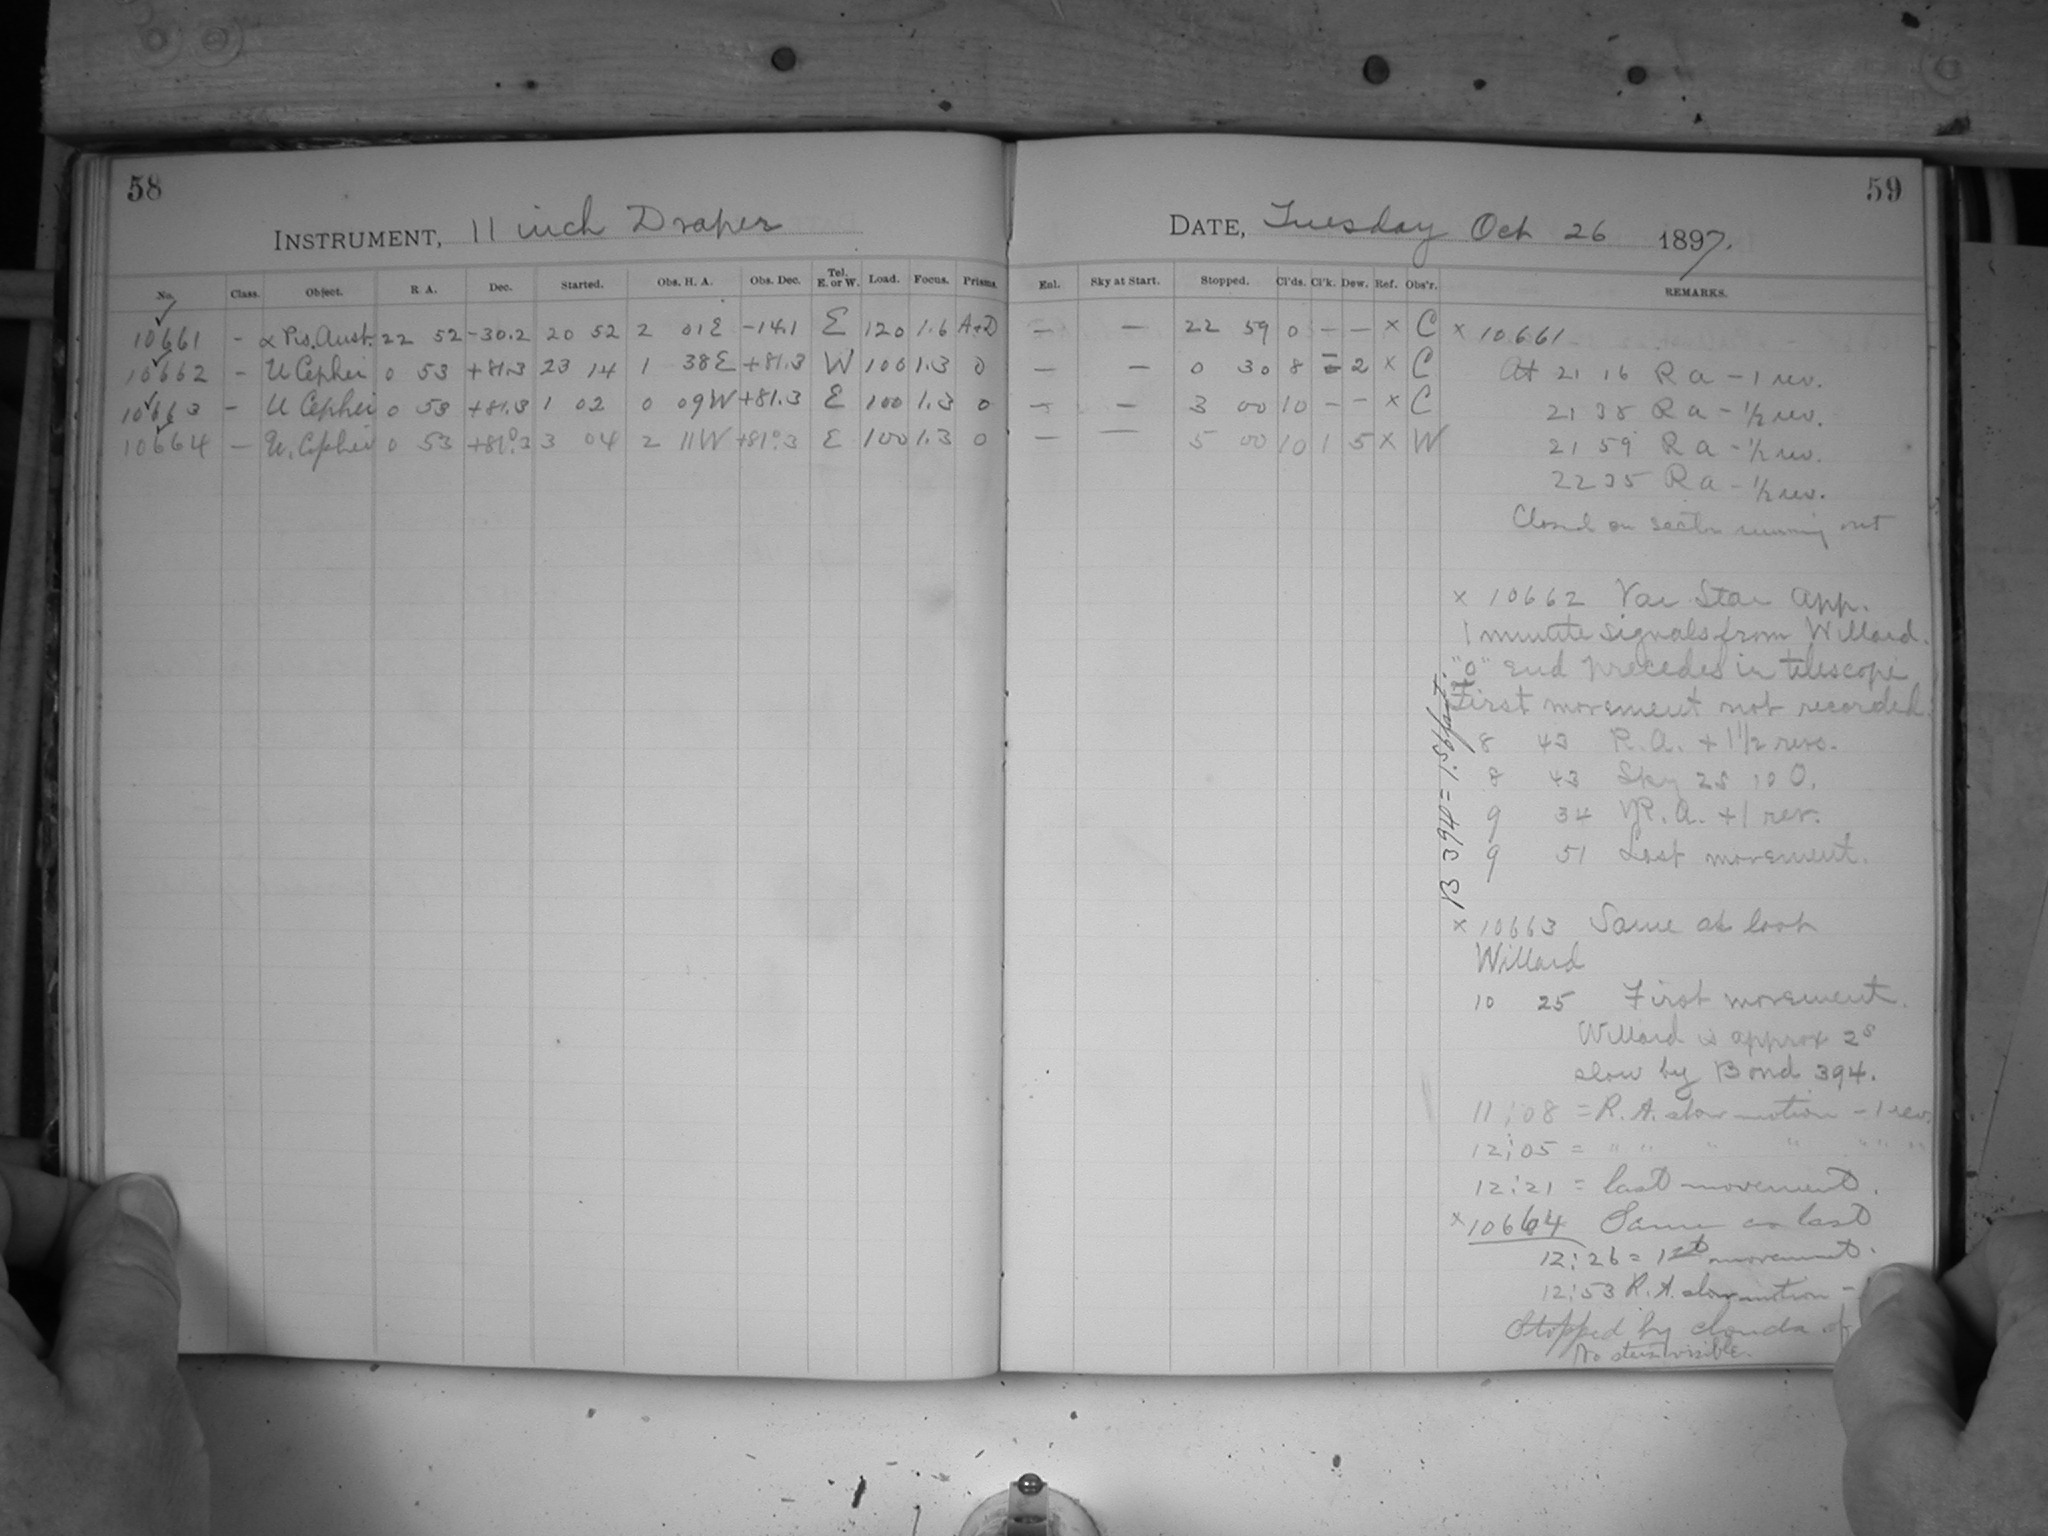 58
INSTRUMENT, 11 inch Draper
No. Class. Object. R A. Dec. Started. Obs. H. A. Obs. Dec. Tel. E. or W. Load. Focus. Prisms.
10661 - α Pis. Aust. 22 52 -30.2 20 52 2 01E -14.1 E 120 1.6 A+D
10662 - U Cephei 0 53 +81.3 23 14 1 38E +81.3 W 100 1.3 0
10663 - U Cephei 0 53 +81.3 1 02 0 09W +81.3 E 100 1.3 0
10664 - U. Cephei 0 53 +81°.3 3 04 2 11W +81°.3 E 100 1.3 0
59
DATE, Tuesday Oct 26 1897.
Enl. Sky at Start. Stopped. Cl'ds. Cl'k. Dew. Ref. Obs'r. REMARKS.
- - 22 59 0 - - × C
- - 0 30 8 2 × C
- - 3 00 10 - - × C
- - 5 00 10 1 5 × W
× 10661
At 21 16 R a - 1 rev.
21 38 R a - 1/2 rev.
21 59 R a - 1/2 rev.
22 35 R a - 1/2 rev.
Closed on sector running out
× 10662 Var Star App.
1 minute signals from Willard.
"0" end precedes in telescope
First movement not recorded.
8 43 R.A. + 1 1/2 revs.
8 43 Sky 25 10 0.
9 34 R.A. +1 rev.
9 51 Last movement.
B 394 =
× 10663 Same as last
Willard
10 25 First movement.
Willard is approx 2s
slow by Bond 394.
11:08 = R.A. slow motion - 1 rev.
12:05 = " " " " " " "
12:21 = last movement.
× 10664 Same as last
12:26 = 1st movement.
12:53 R.A. slow motion -
Stopped by clouds
No stars visible.